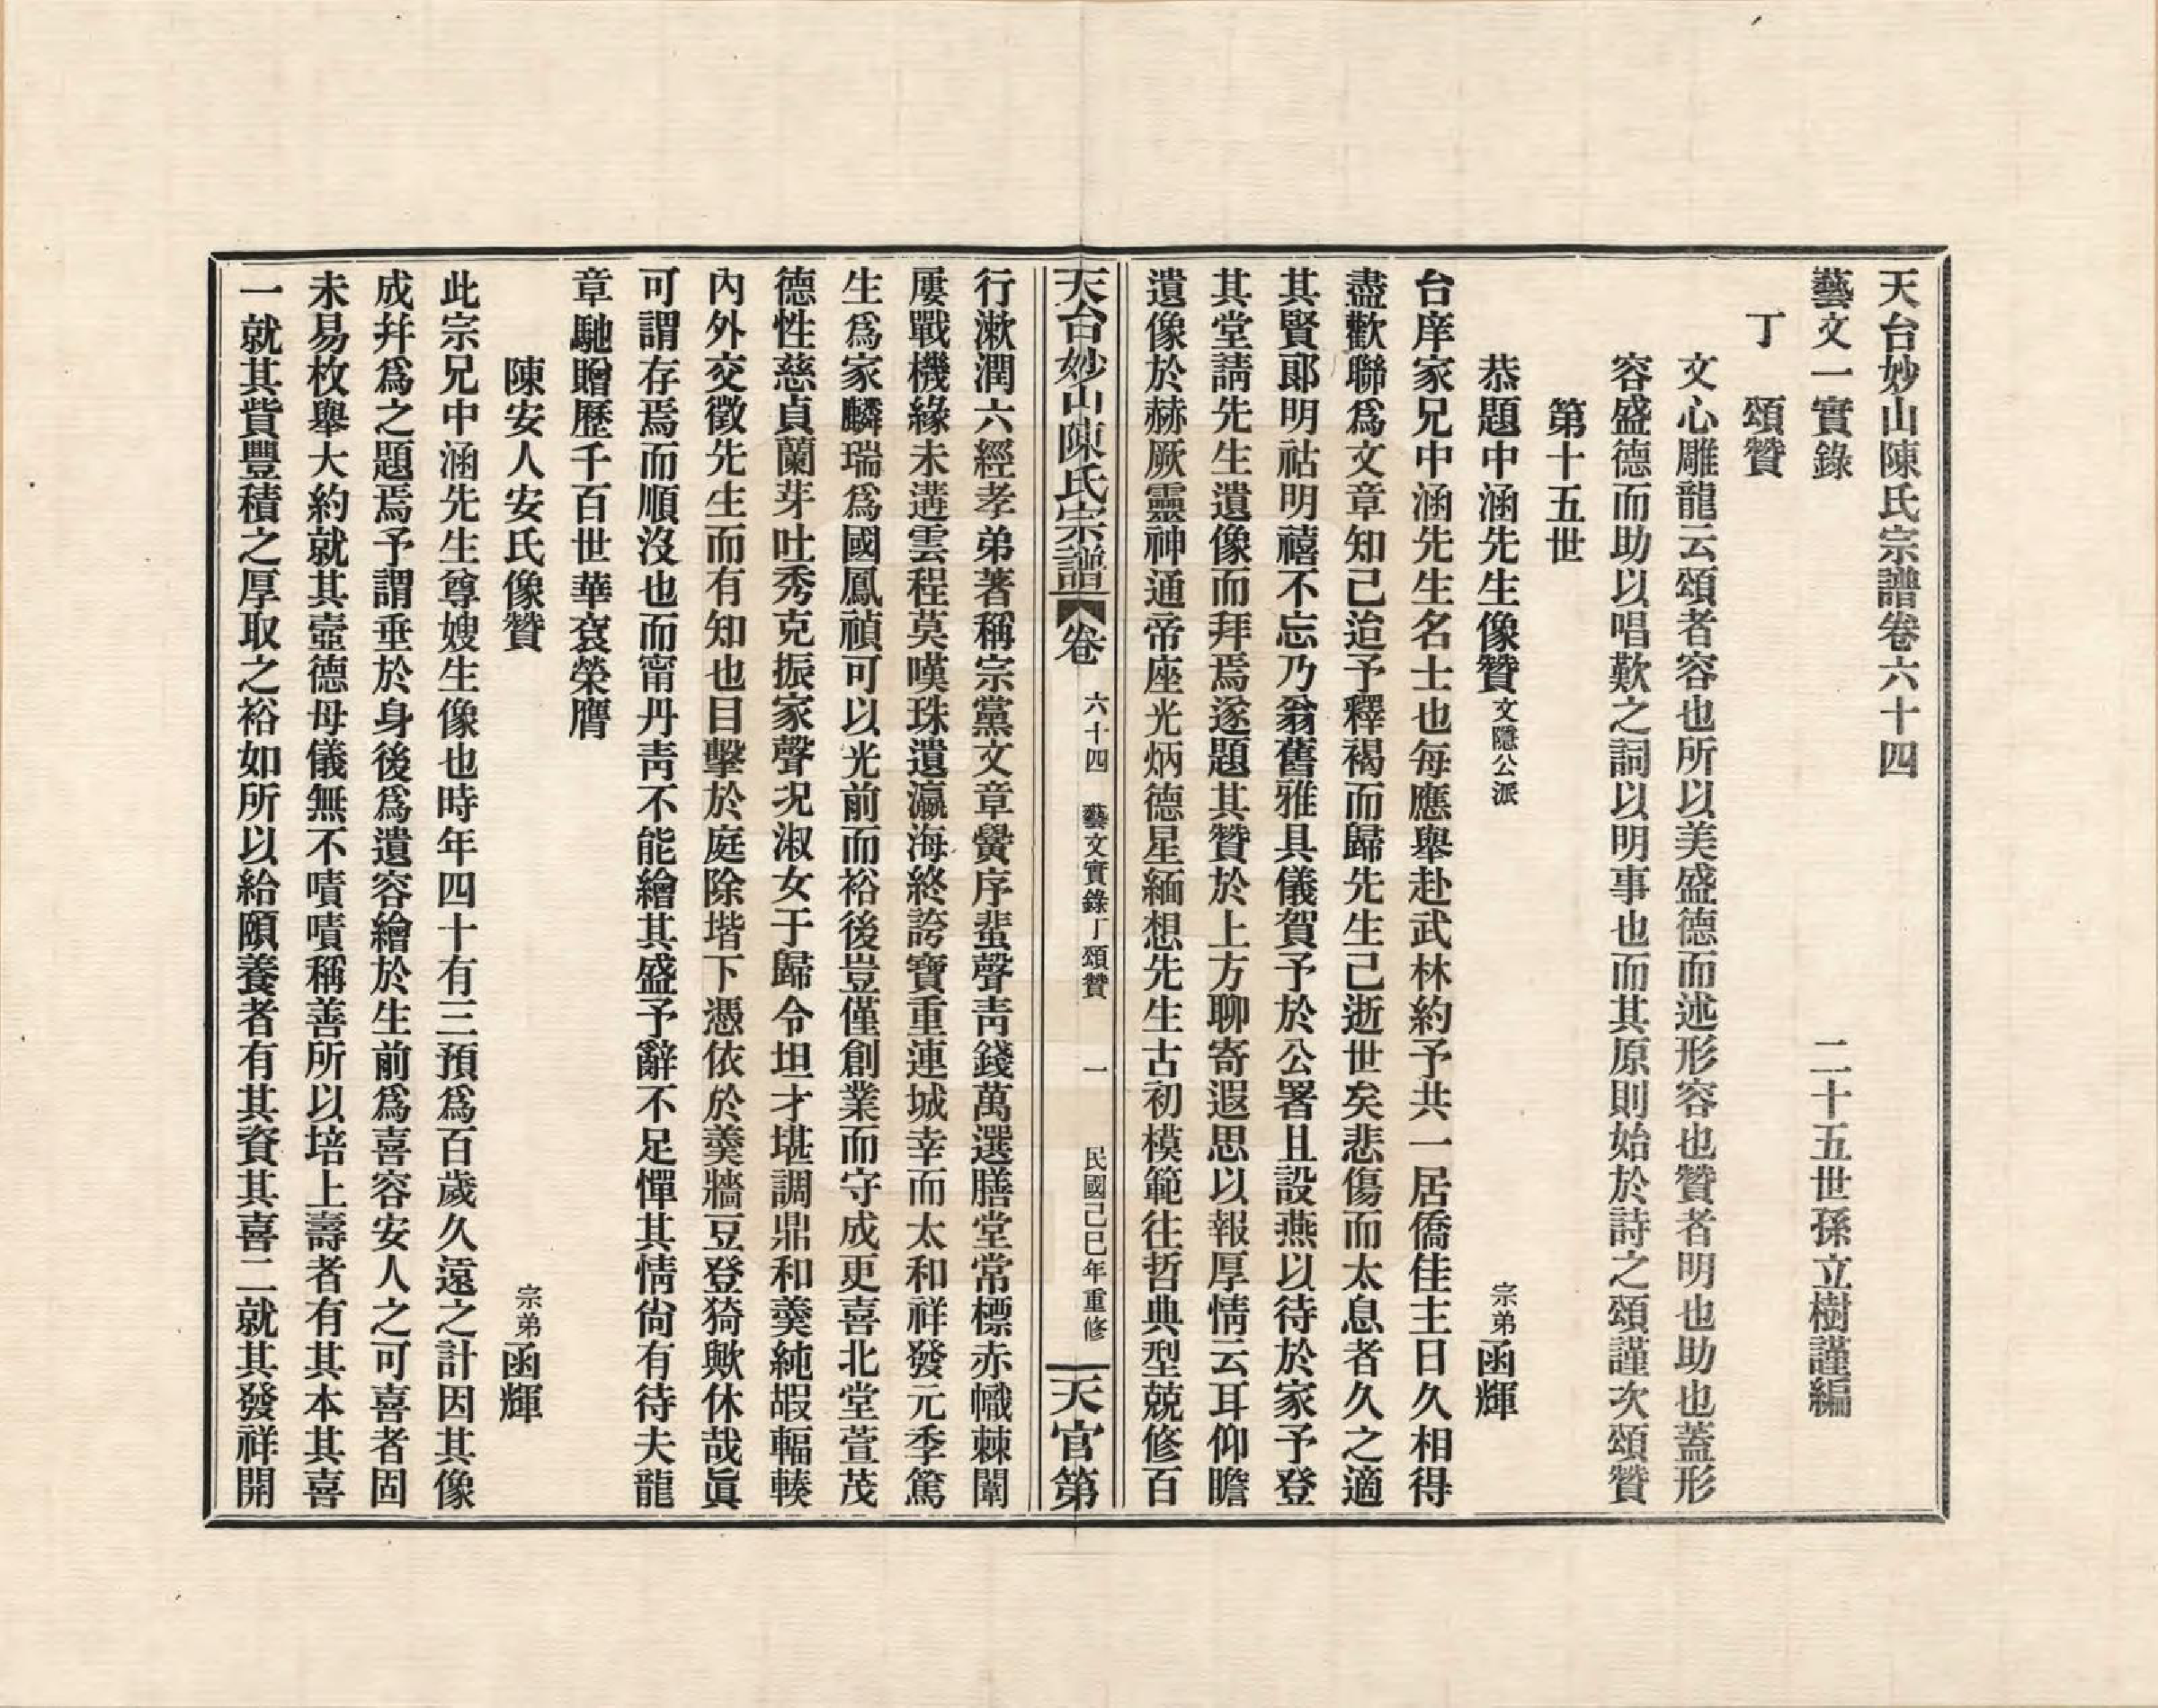 天台妙山陳氏宗譜卷六十四
藝文一實錄　二十五世孫立樹謹編
丁　頌贊
文心雕龍云頌者容也所以美盛德而述形容也贊者明也助也蓋形
容盛德而助以唱歎之詞以明事也而其原則始於詩之頌謹次頌贊
第十五世
恭題中涵先生像贊文隱公派　宗弟函輝
台庠家兄中涵先生名士也每應舉赴武林約予共一居僑佳主日久相得
盡歡聯爲文章知己迨予釋褐而歸先生已逝世矣悲傷而太息者久之適
其賢郞明祜明禧不忘乃翁舊雅具儀賀予於公署且設燕以待於家予登
其堂請先生遺像而拜焉遂題其贊於上方聊寄遐思以報厚情云耳仰瞻
遺像於赫厥靈神通帝座光炳德星緬想先生古初模範往哲典型兢修百
天台妙山陳氏宗譜　卷　六十四　藝文實錄丁頌贊　一　民國己巳年重修　天官第
行漱潤六經孝弟著稱宗黨文章黌序蜚聲靑錢萬選膳堂常標赤幟棘闈
屢戰機緣未遘雲程莫嘆珠遺瀛海終誇寶重連城幸而太和祥發元季篤
生爲家麟瑞爲國鳳禎可以光前而裕後豈僅創業而守成更喜北堂萱茂
德性慈貞蘭芽吐秀克振家聲況淑女于歸令坦才堪調鼎和羹純嘏輻輳
內外交徵先生而有知也目擊於庭除堦下憑依於羹牆豆登猗歟休哉眞
可謂存焉而順沒也而甯丹靑不能繪其盛予辭不足憚其情尙有待夫龍
章馳贈歷千百世華袞榮膺
陳安人安氏像贊　宗弟函輝
此宗兄中涵先生尊嫂生像也時年四十有三預爲百歲久遠之計因其像
成幷爲之題焉予謂垂於身後爲遺容繪於生前爲喜容安人之可喜者固
未易枚舉大約就其壼德母儀無不嘖嘖稱善所以培上壽者有其本其喜
一就其貲豐積之厚取之裕如所以給頤養者有其資其喜二就其發祥開